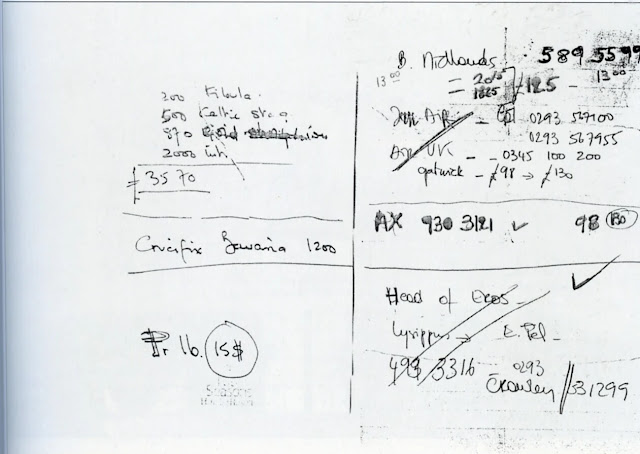 200 Fibula
500 Keltic
870
2000
= 3570
Crucifix Bavaria 1200
Pr lb. 15$
Seasons
B. Midlands 589 5599
13 00
= 2015
= 1825
125 - 13 00
Air - 0293 567100
0293 567955
Air UK - - 0345 100 200
gatwick - £98 → £130
AX 930 3121 ✓ 98 130
Head of Eros -
Lysippus → E. Pel -
493 3316 - 0293
Crawley 331299